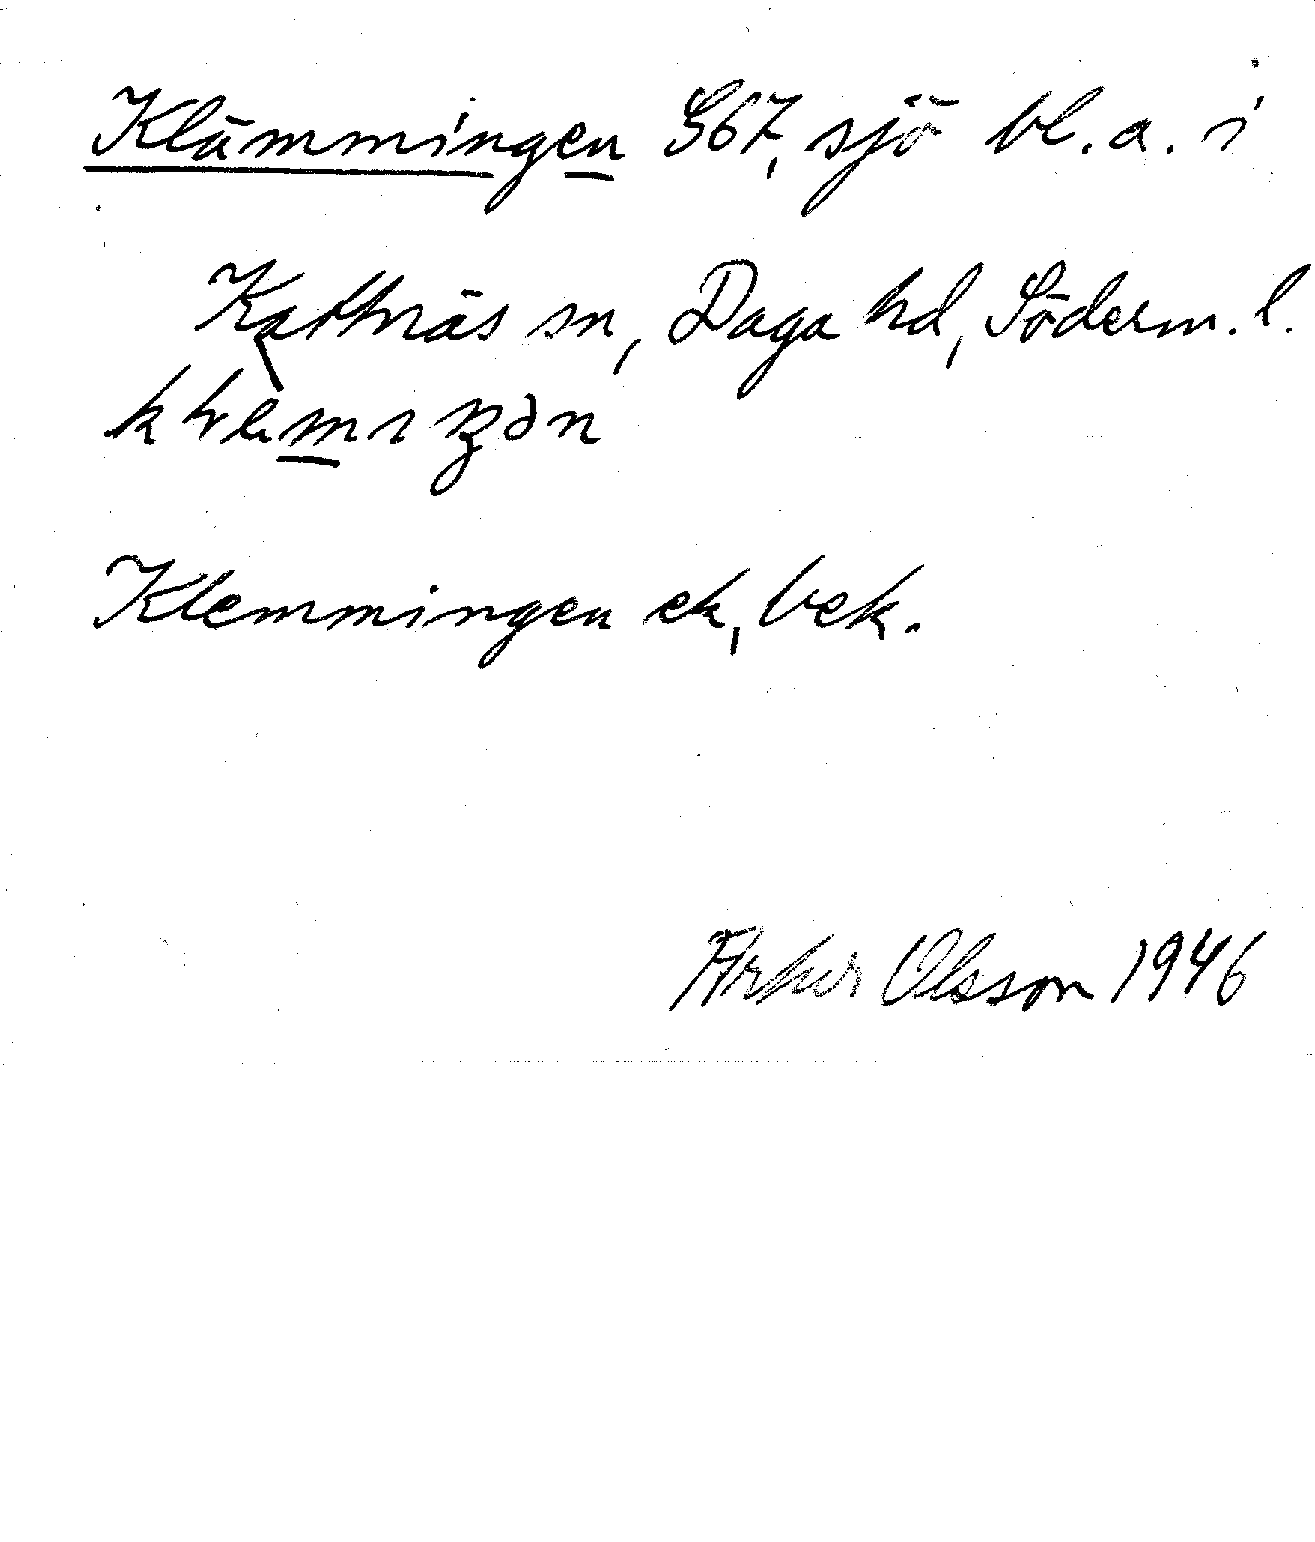 Klämmingen S67, sjö bl. a. i
Kattnäs sn, Daga hd, Söderm. l.
Klemmingen ek, bek.
Artur Olsson 1946